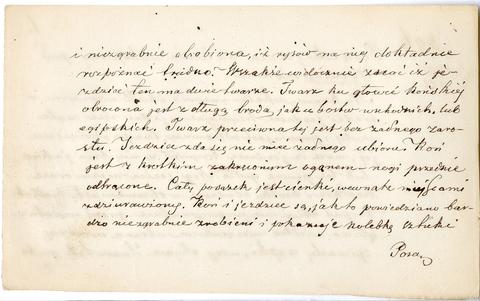 i niezgrabnie obrobiona, iż rysów na niej dokładnie
rozpoznać trudno. Wszakże widocznie znać iż je-
zdziec ten ma dwie twarze. Twarz ku głowie końskiej
obrocona jest z długą brodą, jak u bóstw wschodnich, lub
egipskich. Twarz przeciwna tej jest bez żadnego zaro-
stu. Jezdziec zda się nie mieć żadnego ubioru. Koń
jest z krotkim zakreconym ogonem – nogi przednie
odtrącone. Cały posążek jest cienki, wewnątz miejscami
zdziurawiony. Koń i jezdziec są, jak to powiedziano bar-
dzo niezgrabnie zrobieni i pokazuje kolebkę sztuki